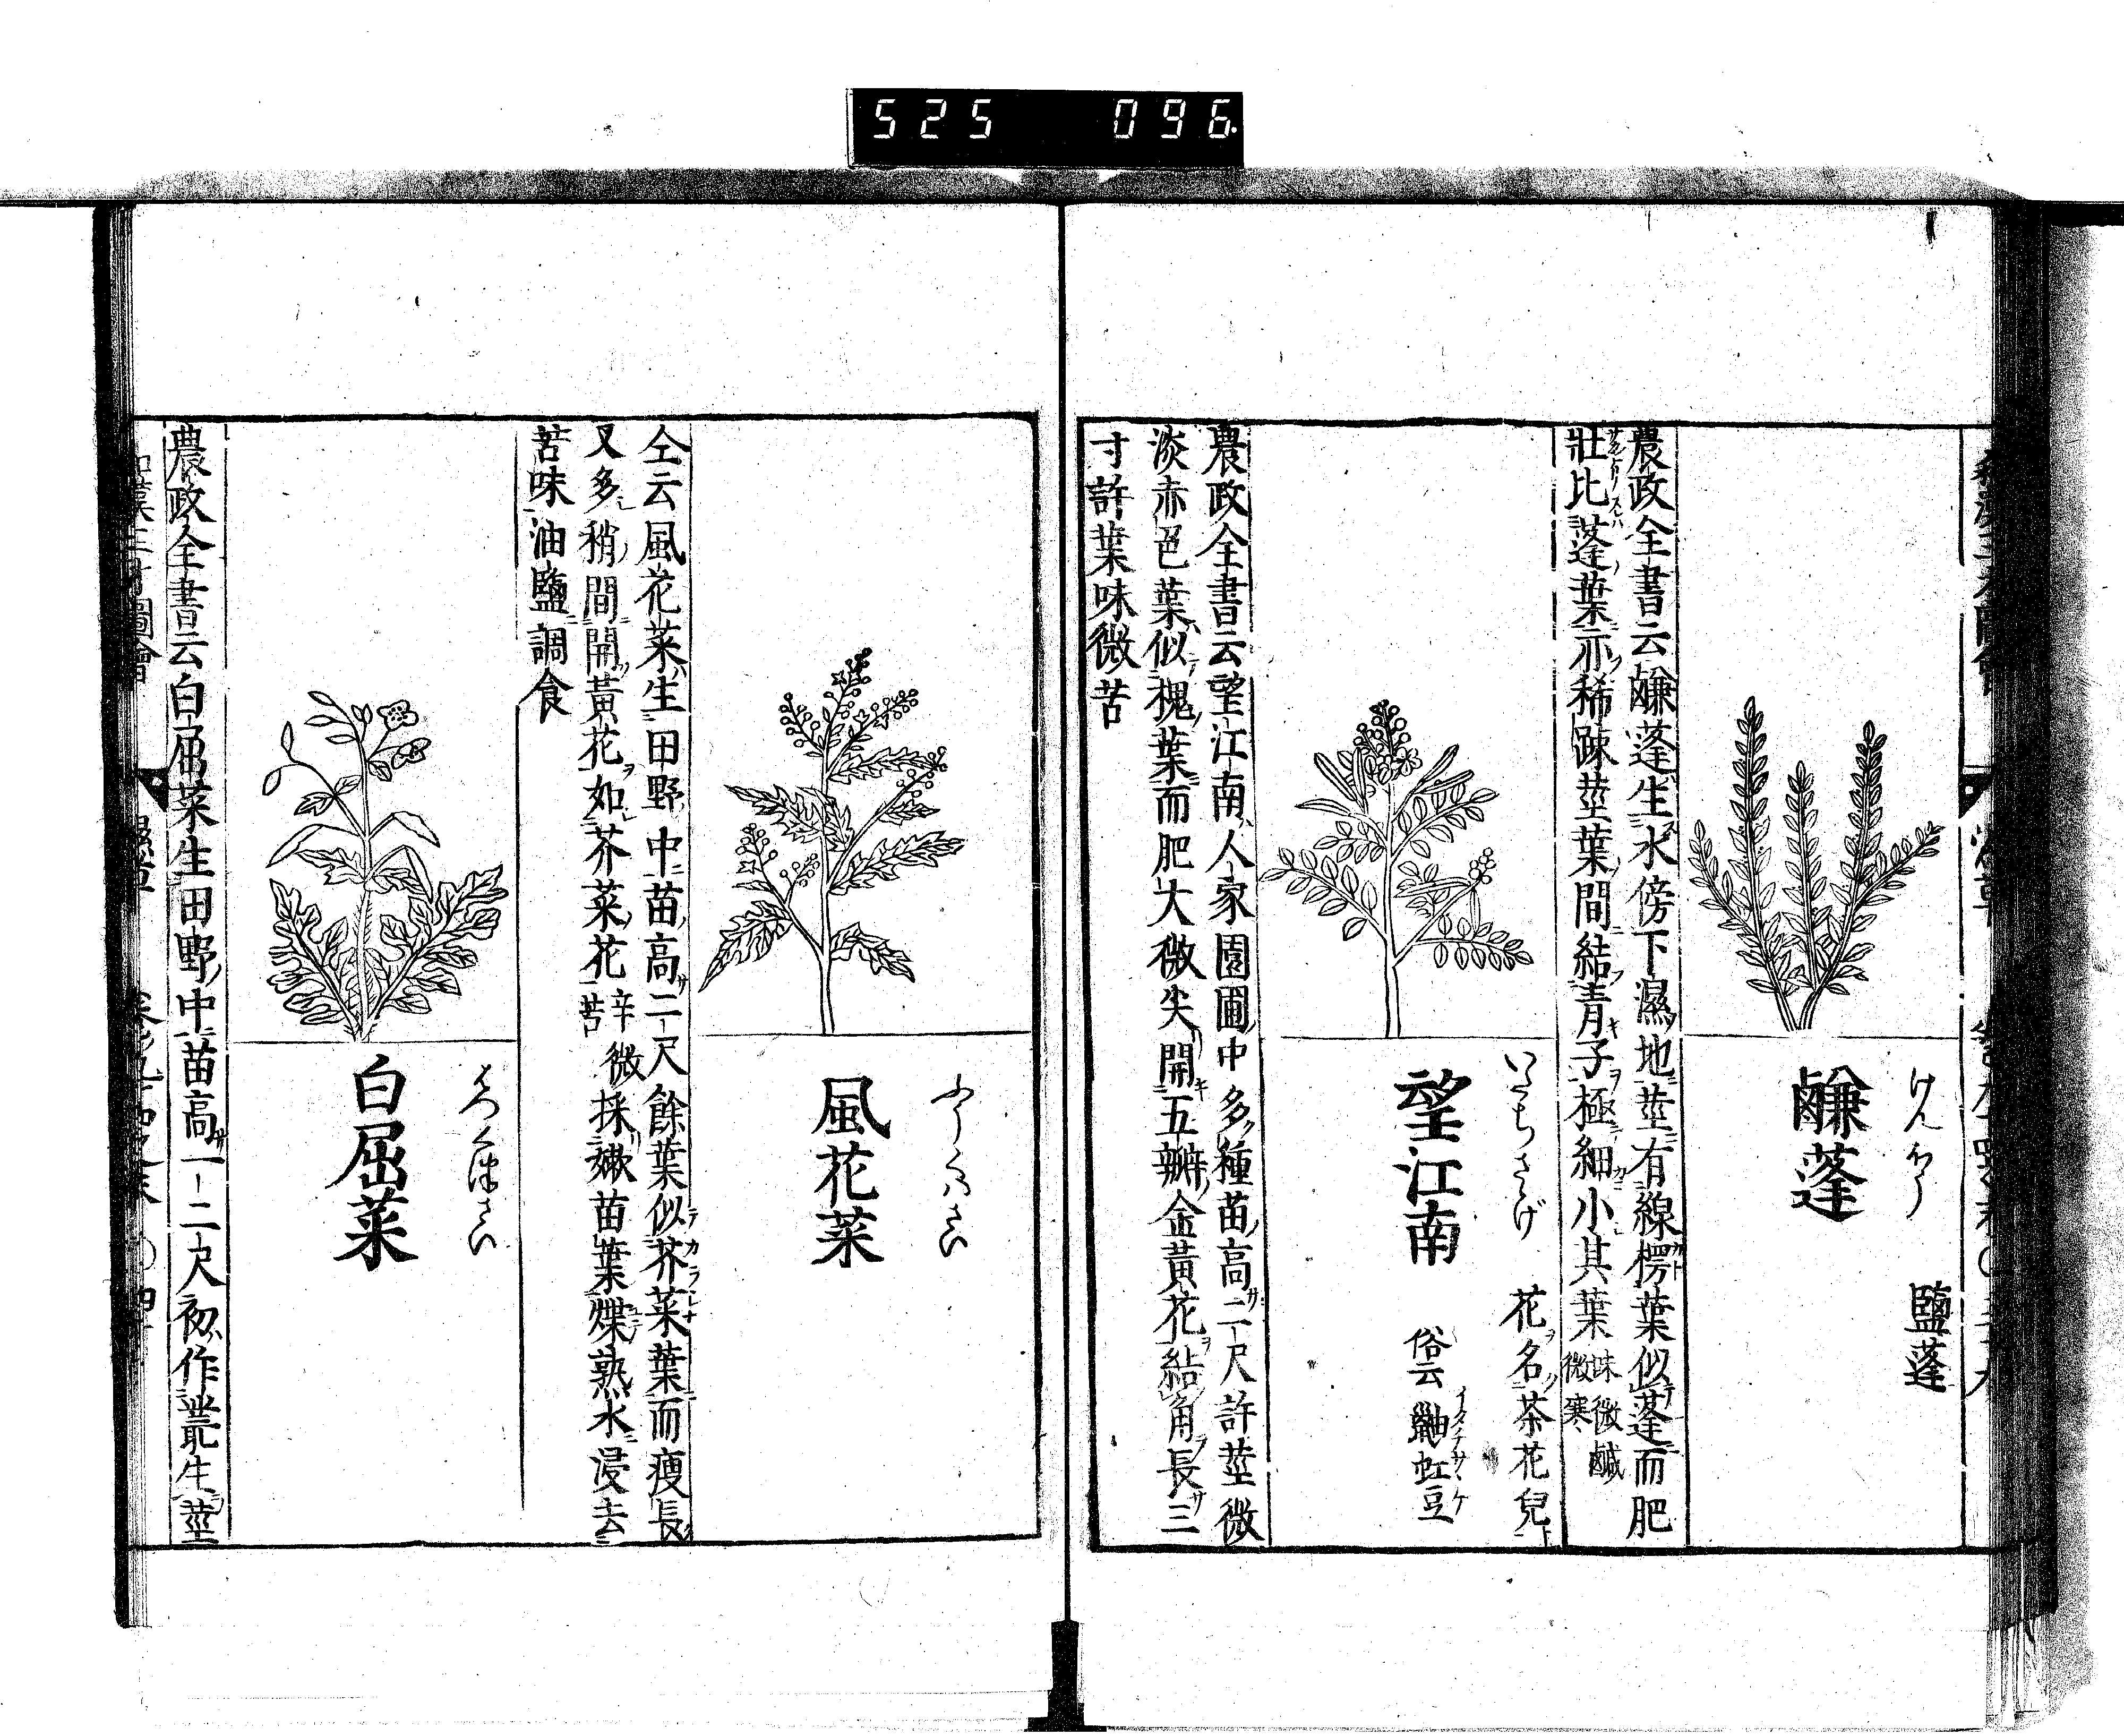 525 096
けんほう
鹽蓬
鹻蓬
農政全書云鹻蓬生水傍下濕地莖有線楞葉似蓬而肥
壯比蓬葉亦稀踈莖葉間結青子極細小其葉味微鹹
微寒
いたちさゝげ
花名茶花兒
望江南
俗云鼬豇豆
イタチサヽケ
農政全書云望江南人家園圃中多種苗高二尺許莖微
淡赤色葉似槐葉而肥大微尖開五瓣金黃花結角長三
寸許葉味微苦
ふうくはさい
風花菜
仝云風花菜生田野中苗高二尺餘葉似芥菜葉而瘦長
又多稍間開黃花如芥菜花辛微
苦
採嫩苗葉煠熟水浸去
苦味油鹽調食
はつくさい
白屈菜
農政全書云白屈菜生田野中苗高一二尺初作叢生莖